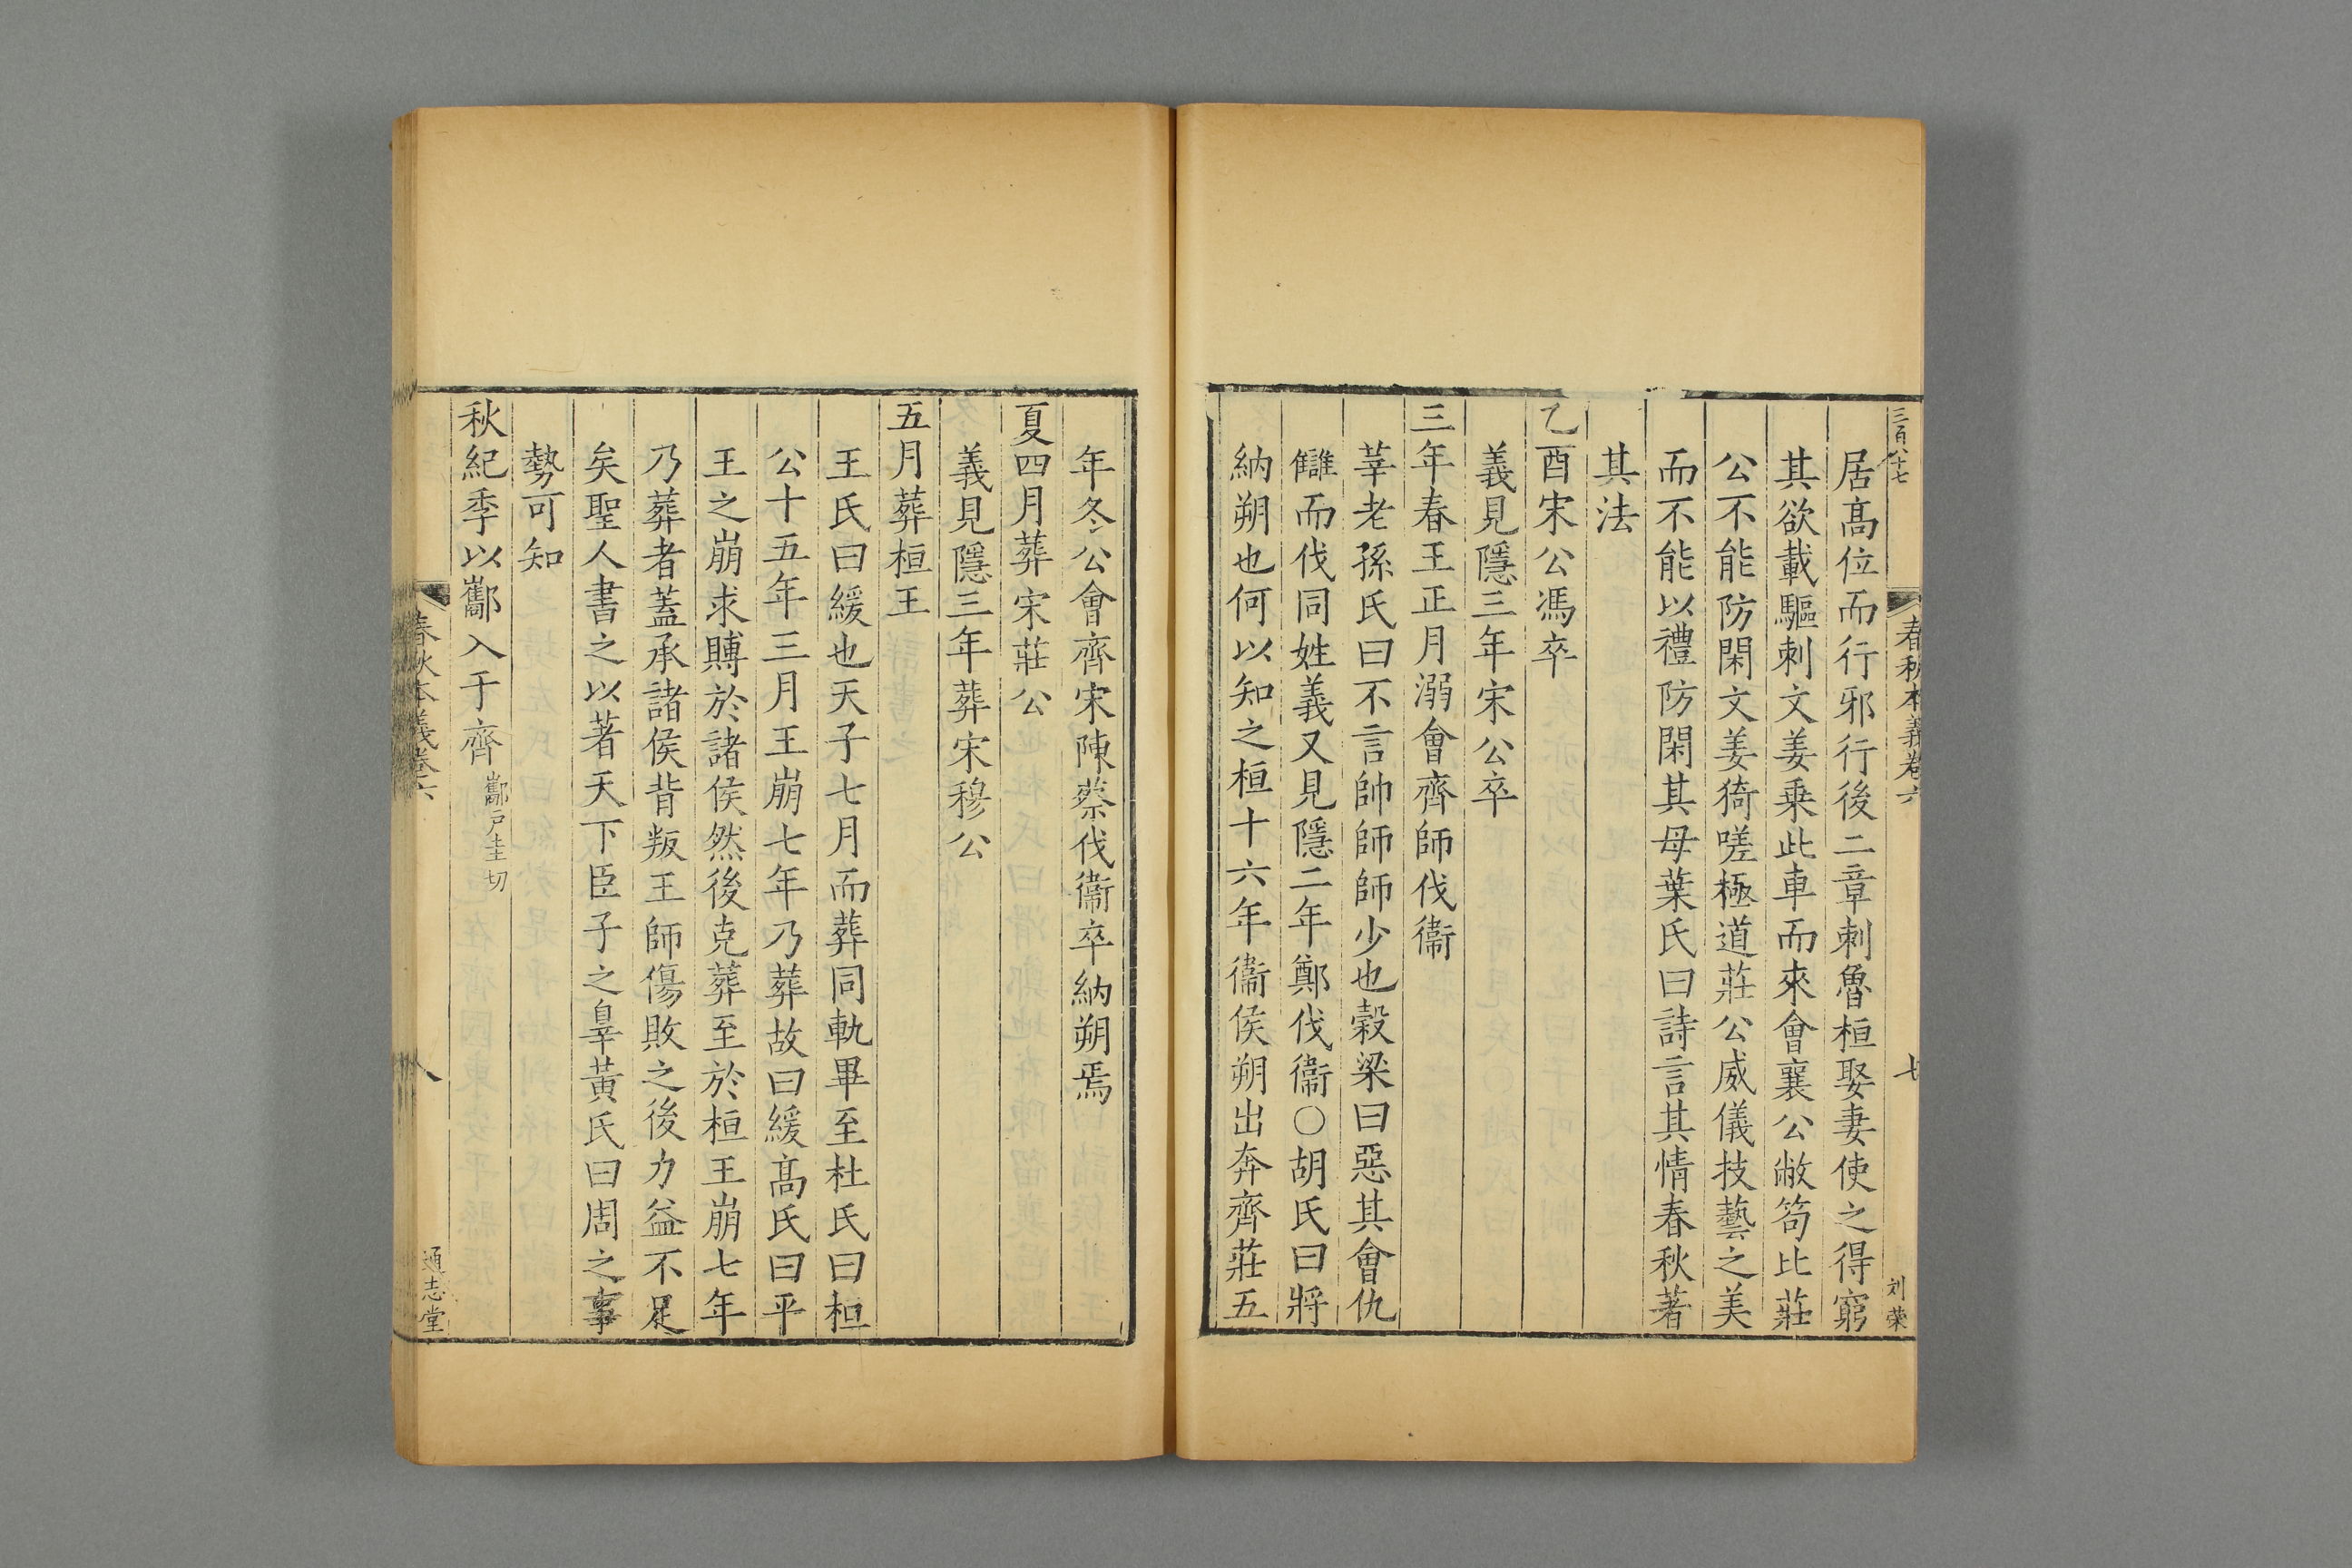 三百八十七
春秋本義卷六
七
刘荣
居高位而行邪行後二章刺魯桓娶妻使之得窮
其欲載驅刺文姜乗此車而來會襄公敝笱比莊
公不能防閑文姜猗嗟極道莊公威儀技藝之美
而不能以禮防閑其母葉氏曰詩言其情春秋著
其法
乙酉宋公馮卒
義見隱三年宋公卒
三年春王正月溺會齊師伐衞
莘老孫氏曰不言帥師師少也穀梁曰惡其會仇
讎而伐同姓義又見隱二年鄭伐衞○胡氏曰將
納朔也何以知之桓十六年衞侯朔出奔齊莊五
年冬公會齊宋陳蔡伐衞卒納朔焉
夏四月葬宋莊公
義見隱三年葬宋穆公
五月葬桓王
王氏曰緩也天子七月而葬同軌畢至杜氏曰桓
公十五年三月王崩七年乃葬故曰緩髙氏曰平
王之崩求賻於諸侯然後克葬至於桓王崩七年
乃葬者蓋承諸侯背叛王師傷敗之後力益不足
矣聖人書之以著天下臣子之辠黃氏曰周之事
勢可知
秋紀季以酅入于齊酅戶圭切
春秋本義卷六
八
通志堂